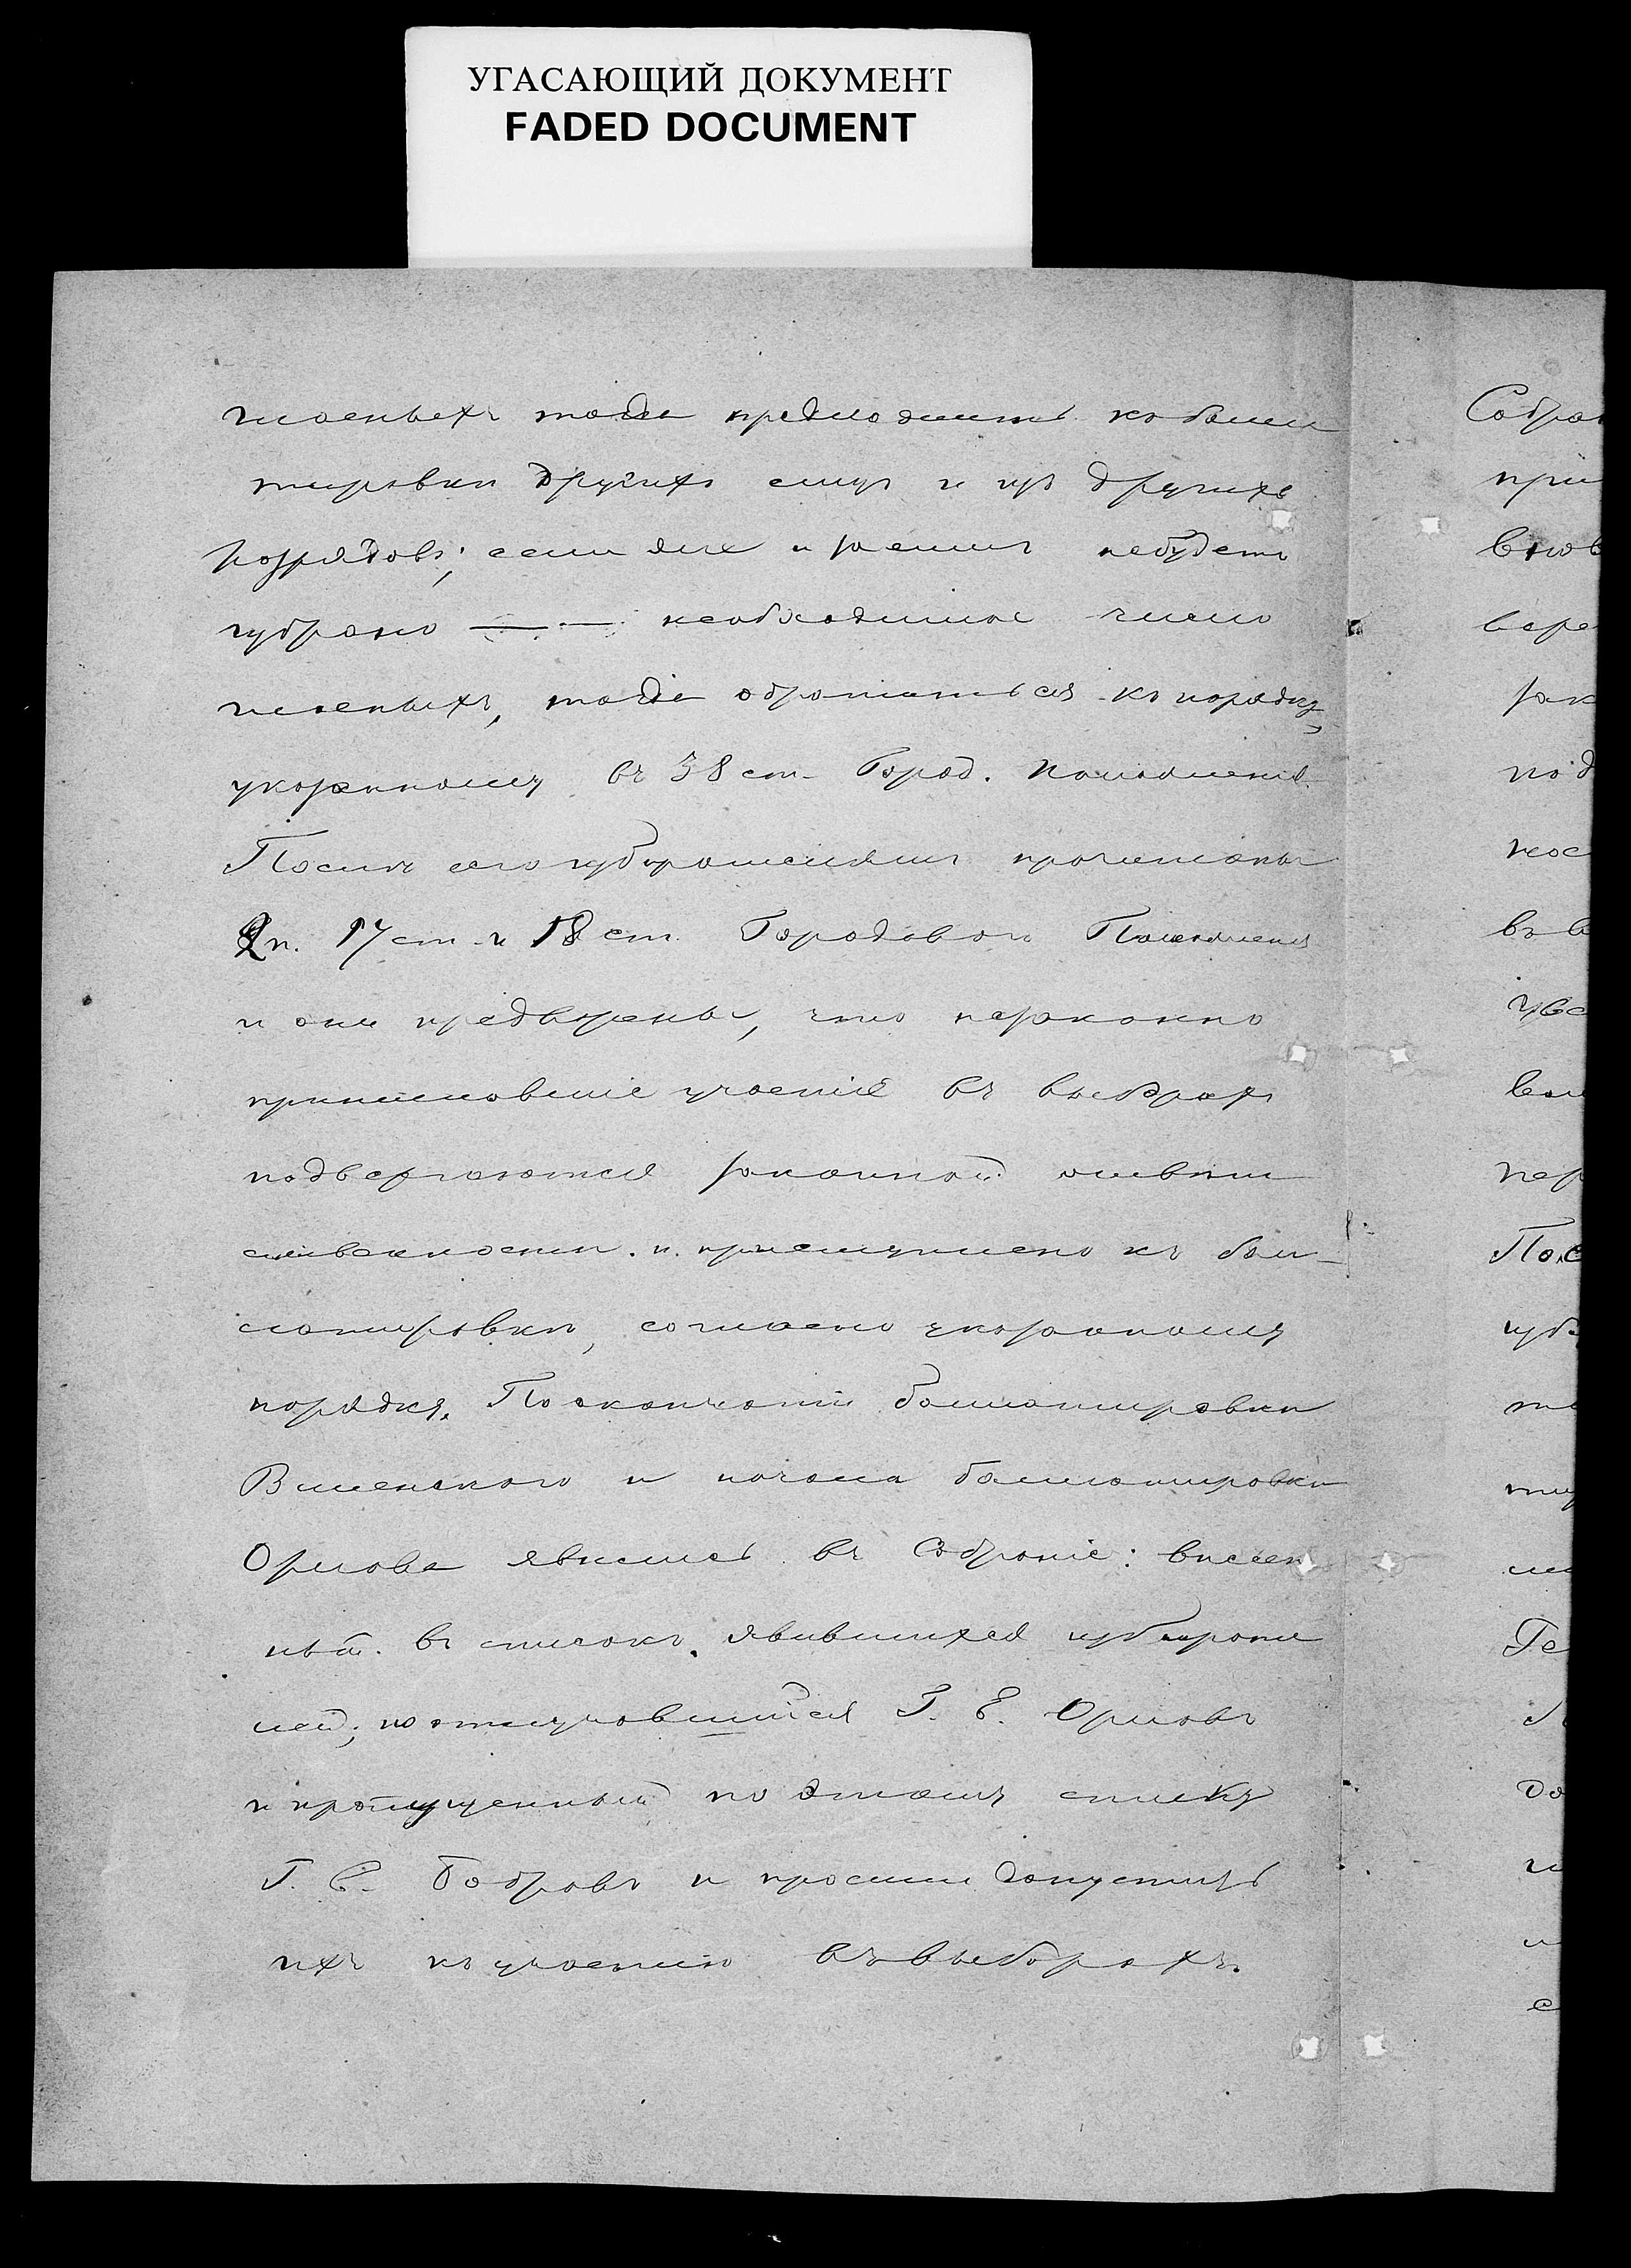 УГАСАЮЩИЙ ДОКУМЕНТ
FADED DOCUMENT
гласныхъ тогда предложить къ балло
тировки другихъ лицъ и изъ другихъ
разрядовъ; если же и затемъ небудетъ
избрано необходимое число
гласныхъ, тогда обратиться къ порядку
указанному въ 38 ст. Город. Положенія.
После сего избирателямъ прочитаны
2 п. 17 ст. и 18 ст. Городоваго Положенія
и они предварены, что незаконно
принимавшіе участіе въ выборахъ
подвергаются законной ответст
венности. и приступлено къ бал-
лотировки, согласно указанному
порядка. По окончаніи баллотировки
и начала баллотировки
Орлова явились въ Собраніе: внесен
ный въ списокъ явившихся избирате
лей, но отлучившійся Г. Е. Орловъ
и пропущенный по этому списку
Г. Е. Бобровъ и просили допустить
ихъ къ участію въ выборахъ.
Собра
при
внов
вере
зак
под
въ в
пер
Пос
изб
Ге
до